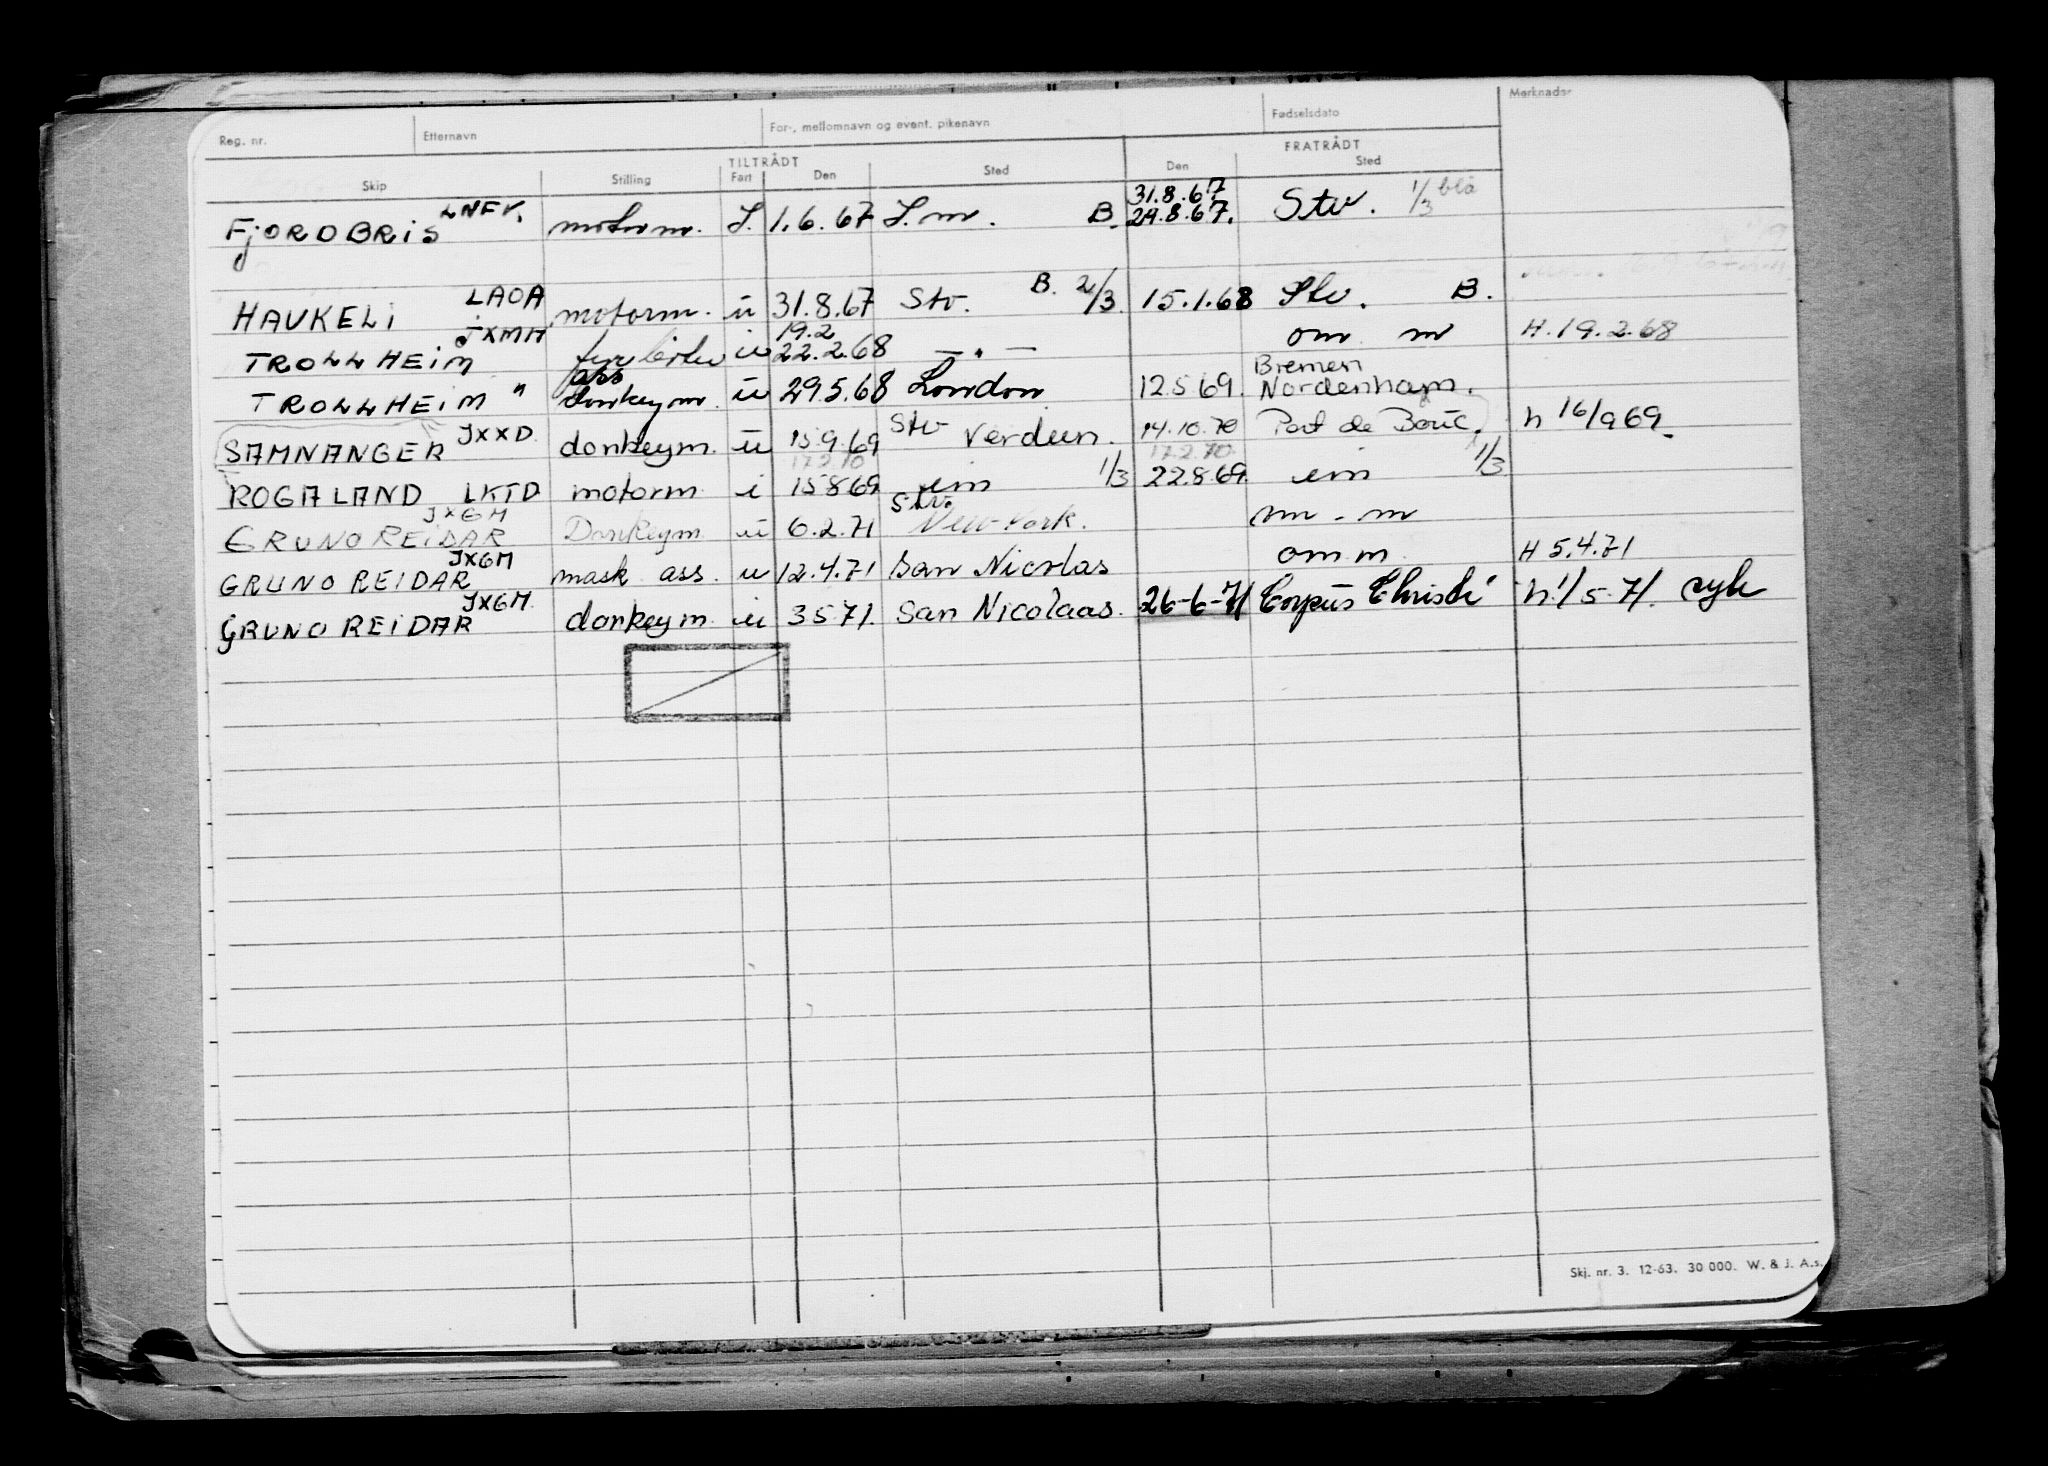 Reg. nr. Etternavn For-, mellomnavn og event. pikenavn Fødselsdato Merknader
TILTRÅDT FRATRÅDT
Skip Stilling Fart Den Sted Den Sted
31.8.67
FJORDBRIS LNFV. motorm. I. 1.6.67 I.m. B. 29.8.67. Stv. 1/3 blå
HAUKELI LAOA motorm. u 31.8.67 Stv. B. 2/3 15.1.68 Stv. B.
19.2
TROLLHEIM JXMH fyrbøter u 22.2.68 — " — om m H. 19.2.68
ass Bremen
TROLLHEIM " donkeym. u 29.5.68 London 12.5.69. Nordenham.
SAMNANGER JXXD donkeym. u 15.9.69 Stv Verdun. 14.10.70 Port de Bouc. h 16/9 69.
17.2.70 17.2.70
ROGALAND LKTD motorm i 15.8.69 ein 1/3 22.8.69 ein 1/3
GRUNO REIDAR JXGM Donkeym u 6.2.71 Stv. New York. m - m
GRUNO REIDAR JXGM mask ass. u 12.4.71 San Nicolas om m H 5.4.71
GRUNO REIDAR JXGM. donkeym. u 3.5.71. San Nicolaas. 26-6-71 Corpus Christi h 1/5-71. syk
Skj. nr. 3. 12-63. 30 000. W. & J. A.s.